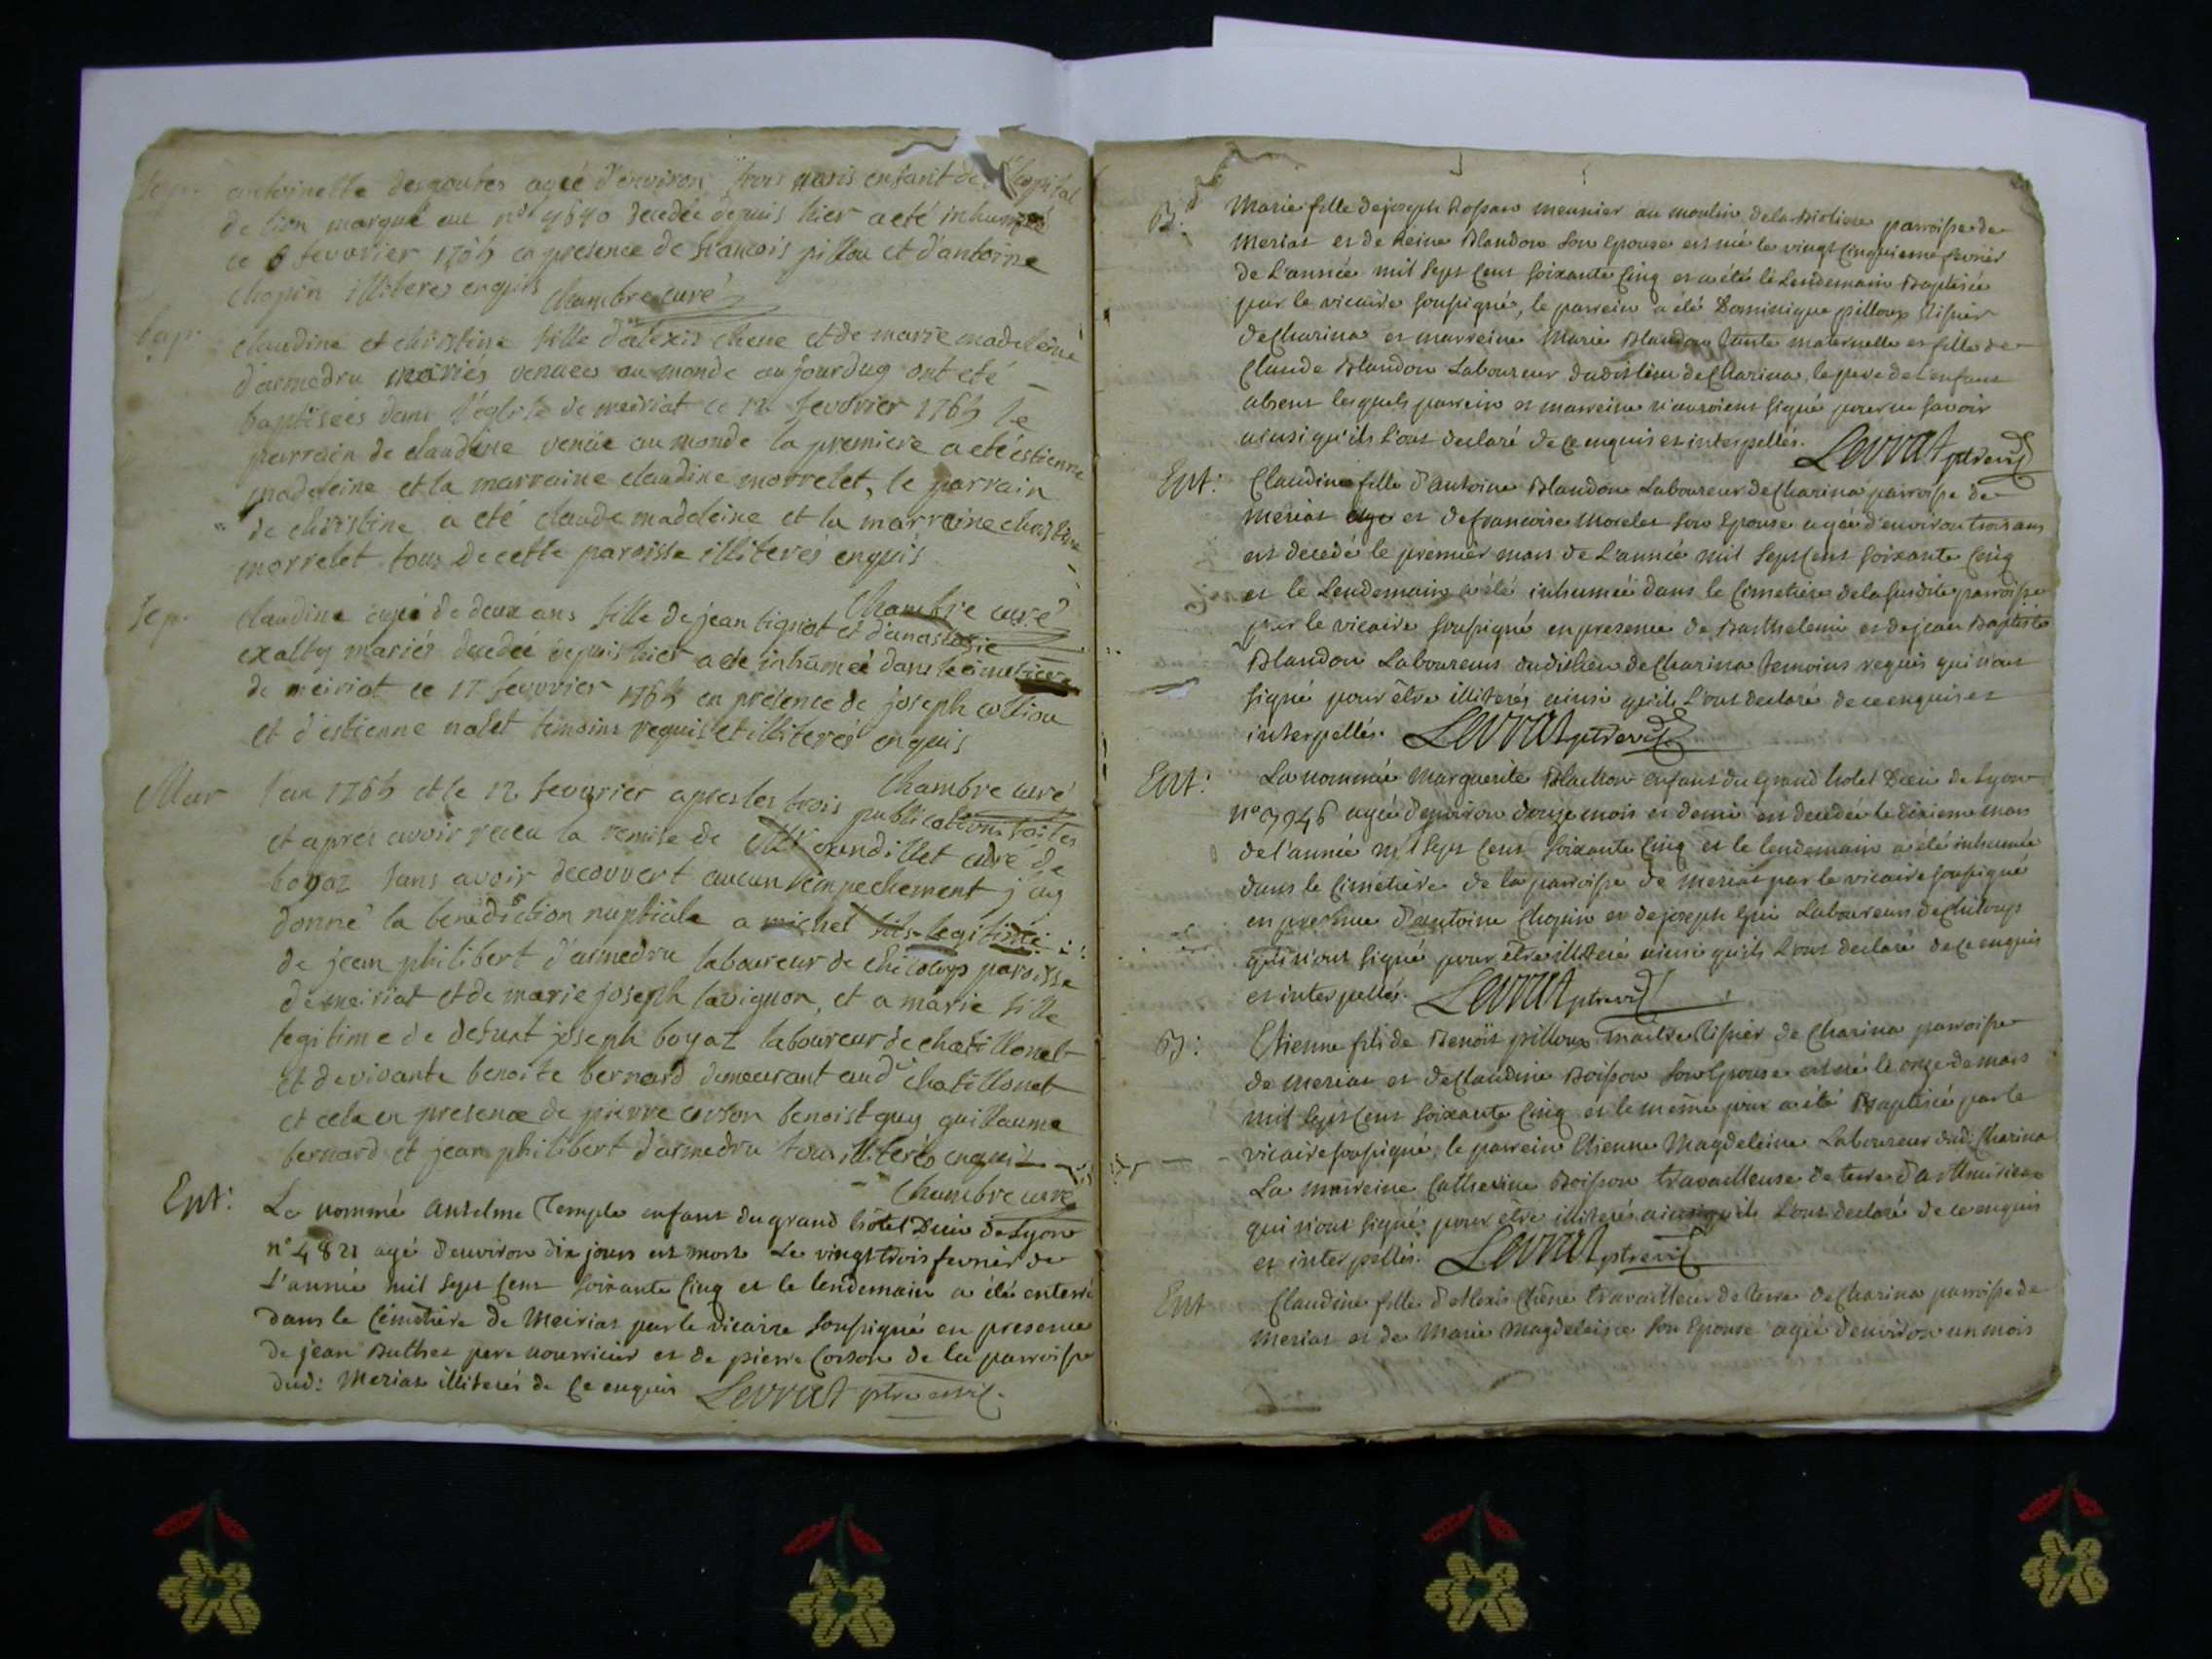 Sep. antoinette desgoutes agée d'environ trois mois enfant de l'hopital
de lion marqué au nº decedée depuis hier a eté inhumée
ce 6 fevvrier 1765 en presence de francois pillou et d'antoine
chopin illiteres enquis chambre curé
bap. claudine et christine fille d'alexis chene et de marie madeleine
d'armedru mariés venues au monde aujourduy ont eté
baptisées dans l'eglise de meiriat ce 12 fevvrier 1765 le
parrain de claudine venüe au monde la premiere a eté estienne
madeleine et la marraine claudine morrelet, le parrain
de christine a eté claude madeleine et la marraine christine
morrelet tous de cette paroisse illiterés enquis
Chambre curé
Sep. claudine agée de deux ans fille de jean tignat et d'anastasie
exalty mariés decedée depuis hier a eté inhumée dans le cimetiere
de meiriat ce 17 fevvrier 1765 en presence de joseph
et d'estienne nalet temoins requis et illiterés enquis
Chambre curé
Mar l'an 1765 et le 12 fevvrier apres les trois publications faites
et apres avoir receu la remise de Mr curé de
boyaz sans avoir decouvert aucun empechement j'ay
donné la benediction nuptiale a michel fils legitime
de jean philibert d'armedru laboureur de chiloup paroisse
de meiriat et de marie joseph lavignon, et a marie fille
legitime de defunt joseph boyaz laboureur de chatillonet
et de vivante benoite bernard demeurant aud chatillonet
et cela en presence de pierre corson benoist guy guillaume
bernard et jean philibert d'armedru tous illiterés enquis
Chambre curé
Ent: Le nommé Antelme Temple enfant du grand hôtel Dieu de Lyon
nº 4821 agé d'environ dix jours est mort Le vingt trois fevrier de
L'année mil sept cent soixante cinq et le lendemain a été enterré
dans le Cémetiére de Meiriat par le vicaire soussigné en presence
de jean Buthet pere nourricier et de pierre Corson de la parroisse
dud: Meriat illiterés de ce enquis Levrat ptre et vic.
B: Marie fille de joseph Rossan meunier au moulin de la parroisse de
Meriat et de Reine Blandon son Epouse est née le vingt cinquieme fevrier
de L'année mil sept cent soixante cinq et a été le Lendemain Baptisée
par le vicaire soussigné, le parrein a été Dominique pilloux tissier
de Charina et marreine Marie Blandon tante maternelle et fille de
Claude Blandon Laboureur dudit lieu de Charina, le pere de l'enfant
absent lesquels parrein et marreine n'auroient signé pour ne savoir
ainsi qu'ils l'ont declaré de ce enquis et interpellés. Levrat ptre vic
Ent: Claudine fille d'Antoine Blandon Laboureur de Charina parroisse de
Meriat et de francoise Morelet son Epouse agée d'environ trois ans
est decedé le premier mars de L'année mil sept cent soixante cinq
et le Lendemain a été inhumée dans le Cimetiere de la susdite parroisse
par le vicaire soussigné en presence de Barthelemi et de jean Baptiste
Blandon Laboureurs dudit lieu de Charina temoins requis qui n'ont
signé pour être illiterés ainsi qu'ils L'ont declaré de ce enquis et
interpellés. Levrat ptre vic.
Ent: La nommée Marguerite Blachon enfant du Grand hotel Dieu de Lyon
nº 3946 agée d'environ douze mois et demi est decedée le dixieme mars
de l'année mil sept cent soixante cinq et le lendemain a été inhumée
dans le Cimetiere de la parroisse de Meriat par le vicaire soussigné
en presence d'antoine Chopin et de joseph Laboureurs de Chiloup
qui n'ont signé pour être illiteré ainsi qu'ils L'ont declaré de ce enquis
et interpellés. Levrat ptre vic
B: Etienne fils de Benoit pilloux maitre tissier de Charina parroisse
de Meriat et de Claudine Boisson son Epouse est né le onze de mars
mil sept cent soixante cinq et le même jour a été Baptisé par le
vicaire soussigné, le parrein Etienne Magdeleine Laboureur dud: Charina
La marreine Catherine Boisson travailleuse de terre
qui n'ont signé pour être illiterés ainsi qu'ils L'ont declaré de ce enquis
et interpellés. Levrat ptre vic
Ent Claudine fille d'Alexis Chêne travailleur de terre de Charina parroisse de
Meriat et de Marie Magdeleine son Epouse agée d'environ un mois